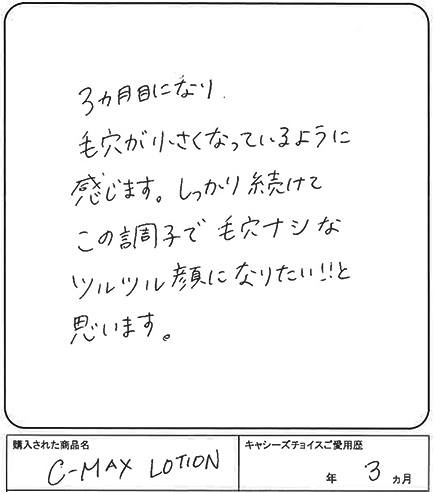 3カ月目になり
毛穴が小さくなっているように
感じます。しっかり続けて
この調子で毛穴ナシな
ツルツル顔になりたい!!と
思います。
購入された商品名
C-MAX LOTION
キャシーズチョイスご愛用座
年 3 ヵ月